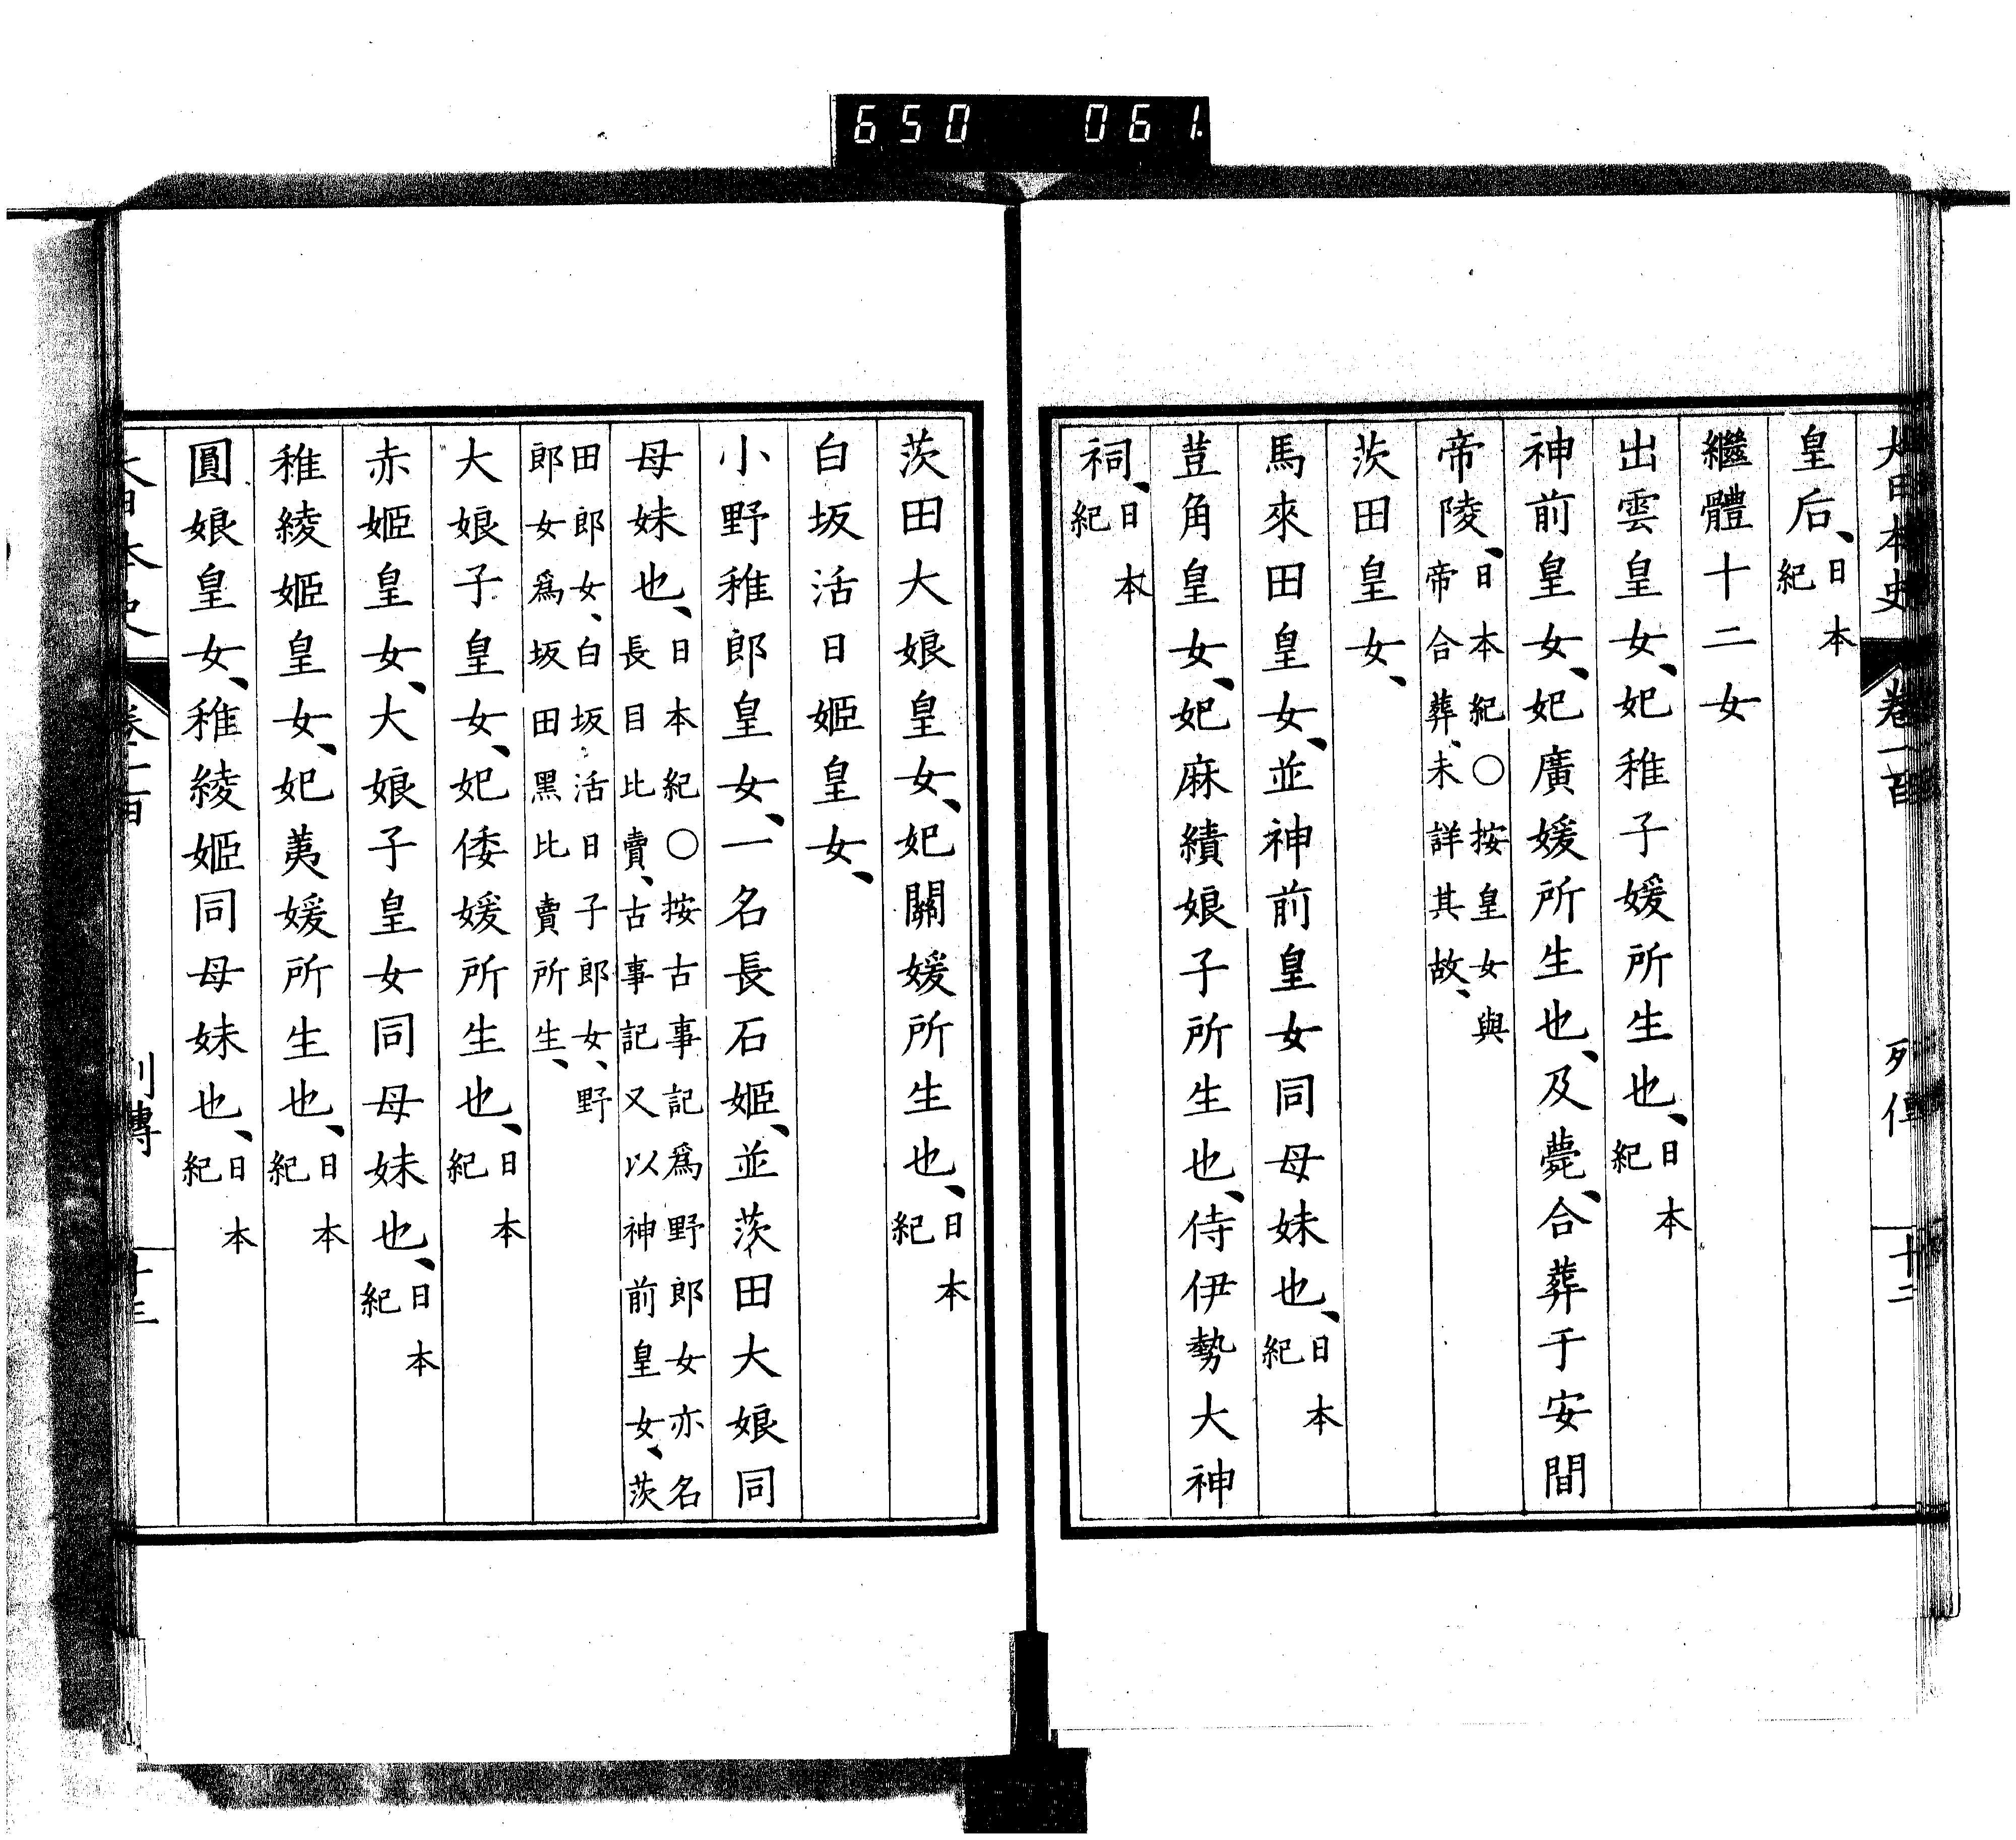 650 061
大日本史 卷一百 列傳 十二
皇后、日本紀
繼體十二女
出雲皇女、妃稚子媛所生也、日本紀
神前皇女、妃廣媛所生也、及薨、合葬于安閒
帝陵、日本紀〇按皇女與帝合葬、未詳其故、
茨田皇女、
馬來田皇女、並神前皇女同母妹也、日本紀
荳角皇女、妃麻績娘子所生也、侍伊勢大神
祠、日本紀
茨田大娘皇女、妃關媛所生也、日本紀
白坂活日姬皇女、
小野稚郎皇女、一名長石姬、並茨田大娘同
母妹也、日本紀〇按古事記爲野郎女亦名長目比賣、古事記又以神前皇女、茨
田郎女、白坂活日子郎女、野郎女爲坂田黑比賣所生、
大娘子皇女、妃倭媛所生也、日本紀
赤姬皇女、大娘子皇女同母妹也、日本紀
稚綾姬皇女、妃荑媛所生也、日本紀
圓娘皇女、稚綾姬同母妹也、日本紀
大日本史 卷一百 列傳 十三